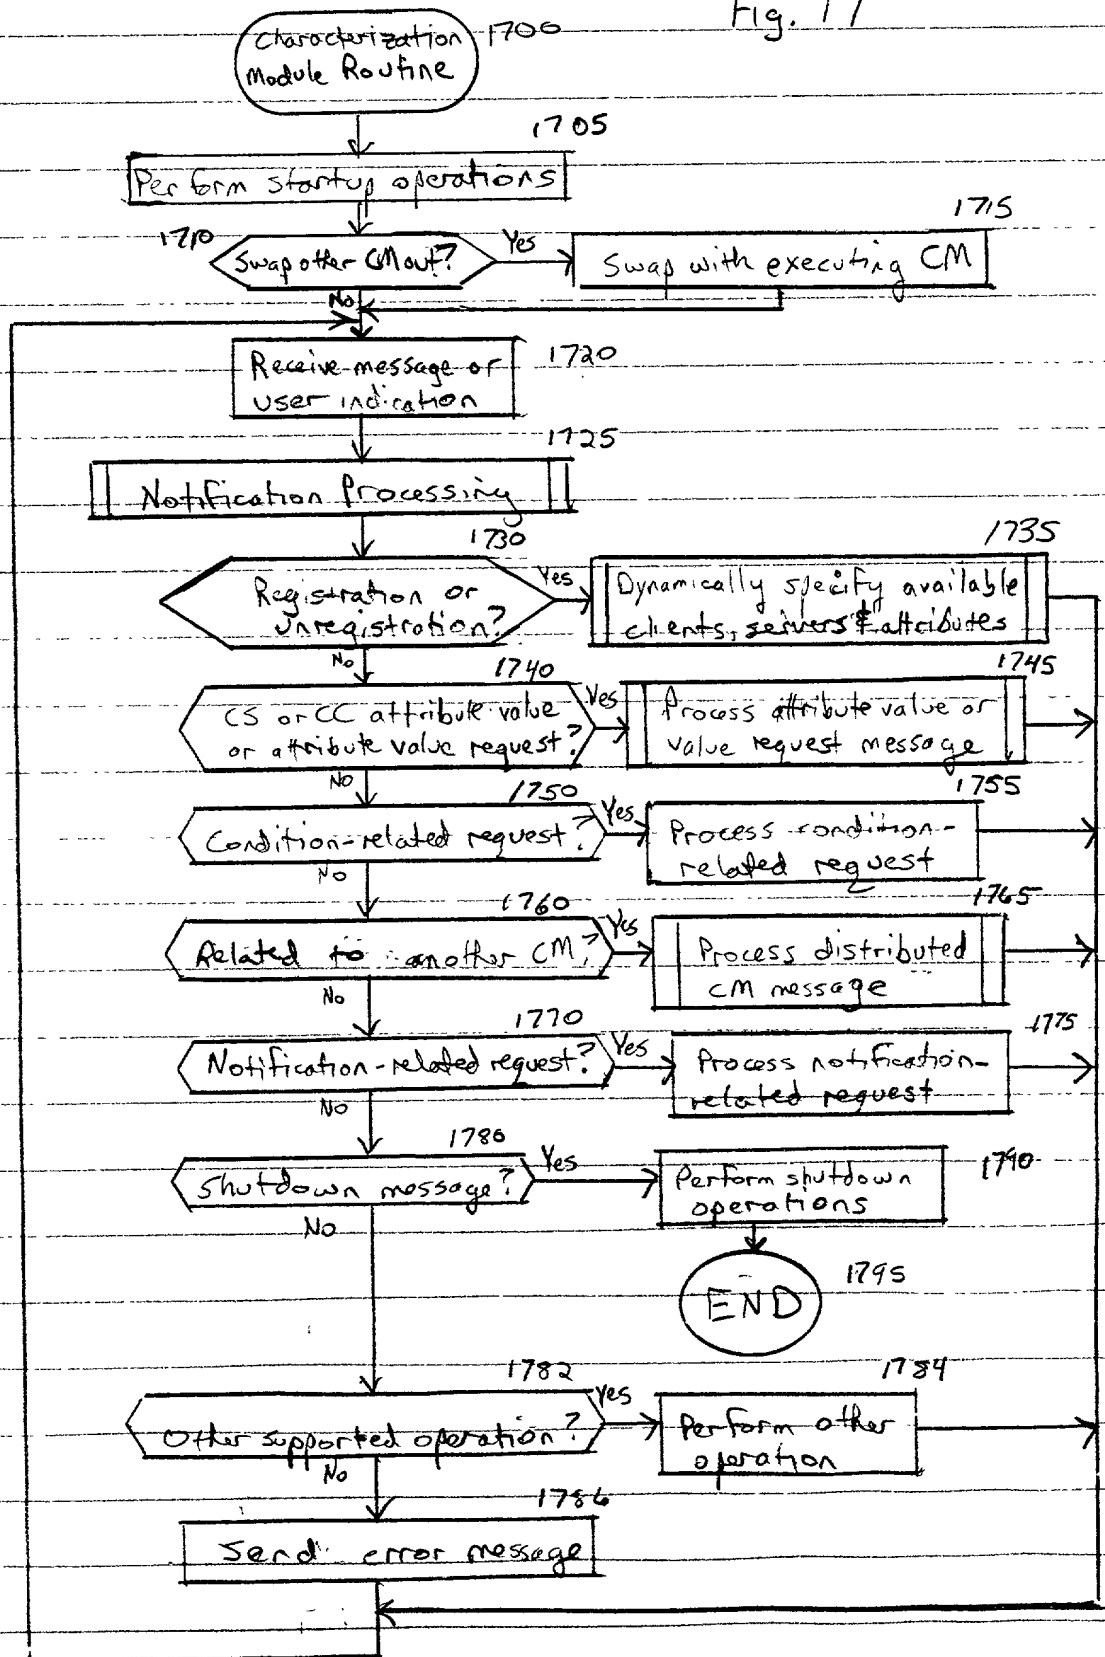 Fig. 17
Characterization 1700
Module Routine
1705
Perform startup operations
1710
Swap other CM out?
Yes
1715
Swap with executing CM
No
Receive message or
user indication
1720
1725
Notification Processing
1730
Registration or
unregistration?
Yes
1735
Dynamically specify available
clients, servers & attributes
No
1740
CS or CC attribute value
or attribute value request?
Yes
1745
Process attribute value or
value request message
No
1750
Condition-related request?
Yes
1755
Process condition-
related request
No
1760
Related to another CM?
Yes
1765
Process distributed
CM message
No
1770
Notification-related request?
Yes
1775
Process notification-
related request
No
1780
Shutdown message?
Yes
1790
Perform shutdown
operations
No
1795
END
1782
Other supported operation?
Yes
1784
Perform other
operation
No
1786
Send error message